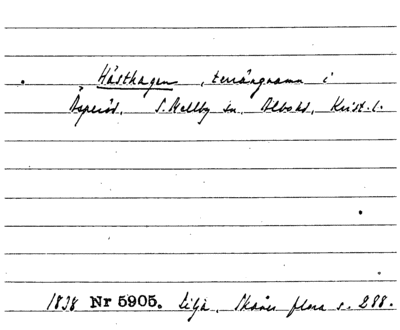 Hästhagen, terrängnamn i
Äsperöd, S. Mellby sn, Albo hd, Krist. l.
1838 Nr 5905. Lilja, Skånes flora s. 288.